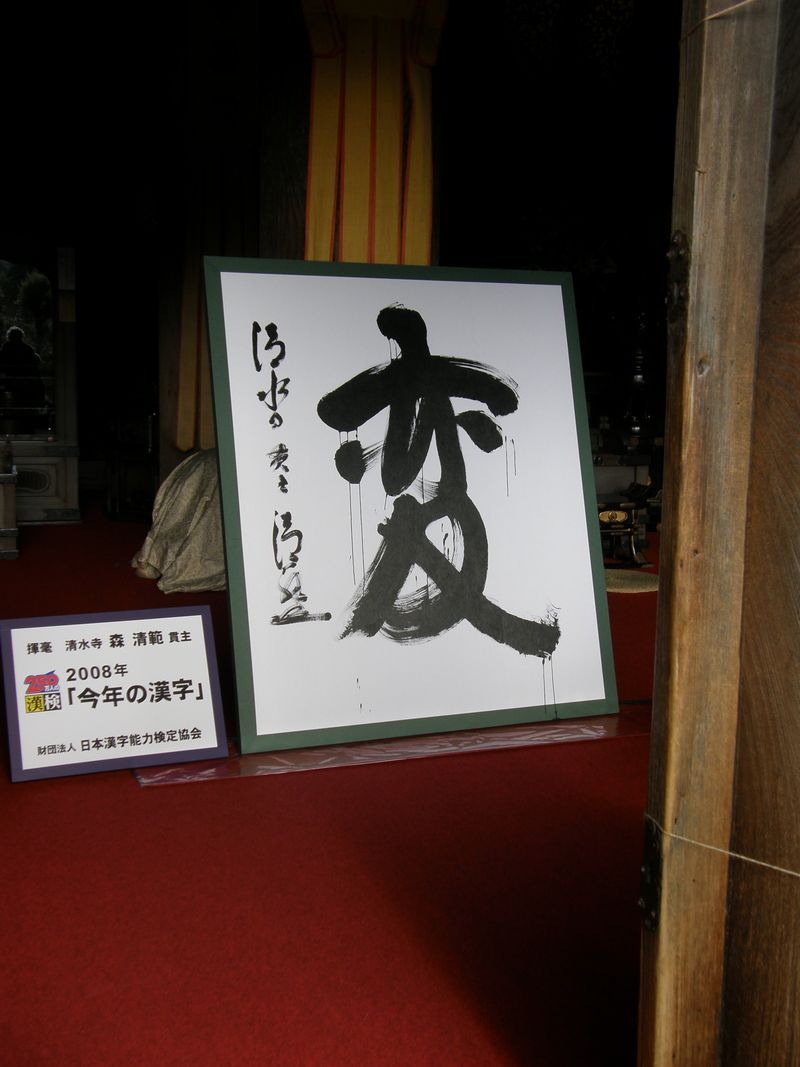 変
清水寺 貫主 清範
揮毫 清水寺 森 清範 貫主
250
万人の
漢検
2008年
「今年の漢字」
財団法人 日本漢字能力検定協会